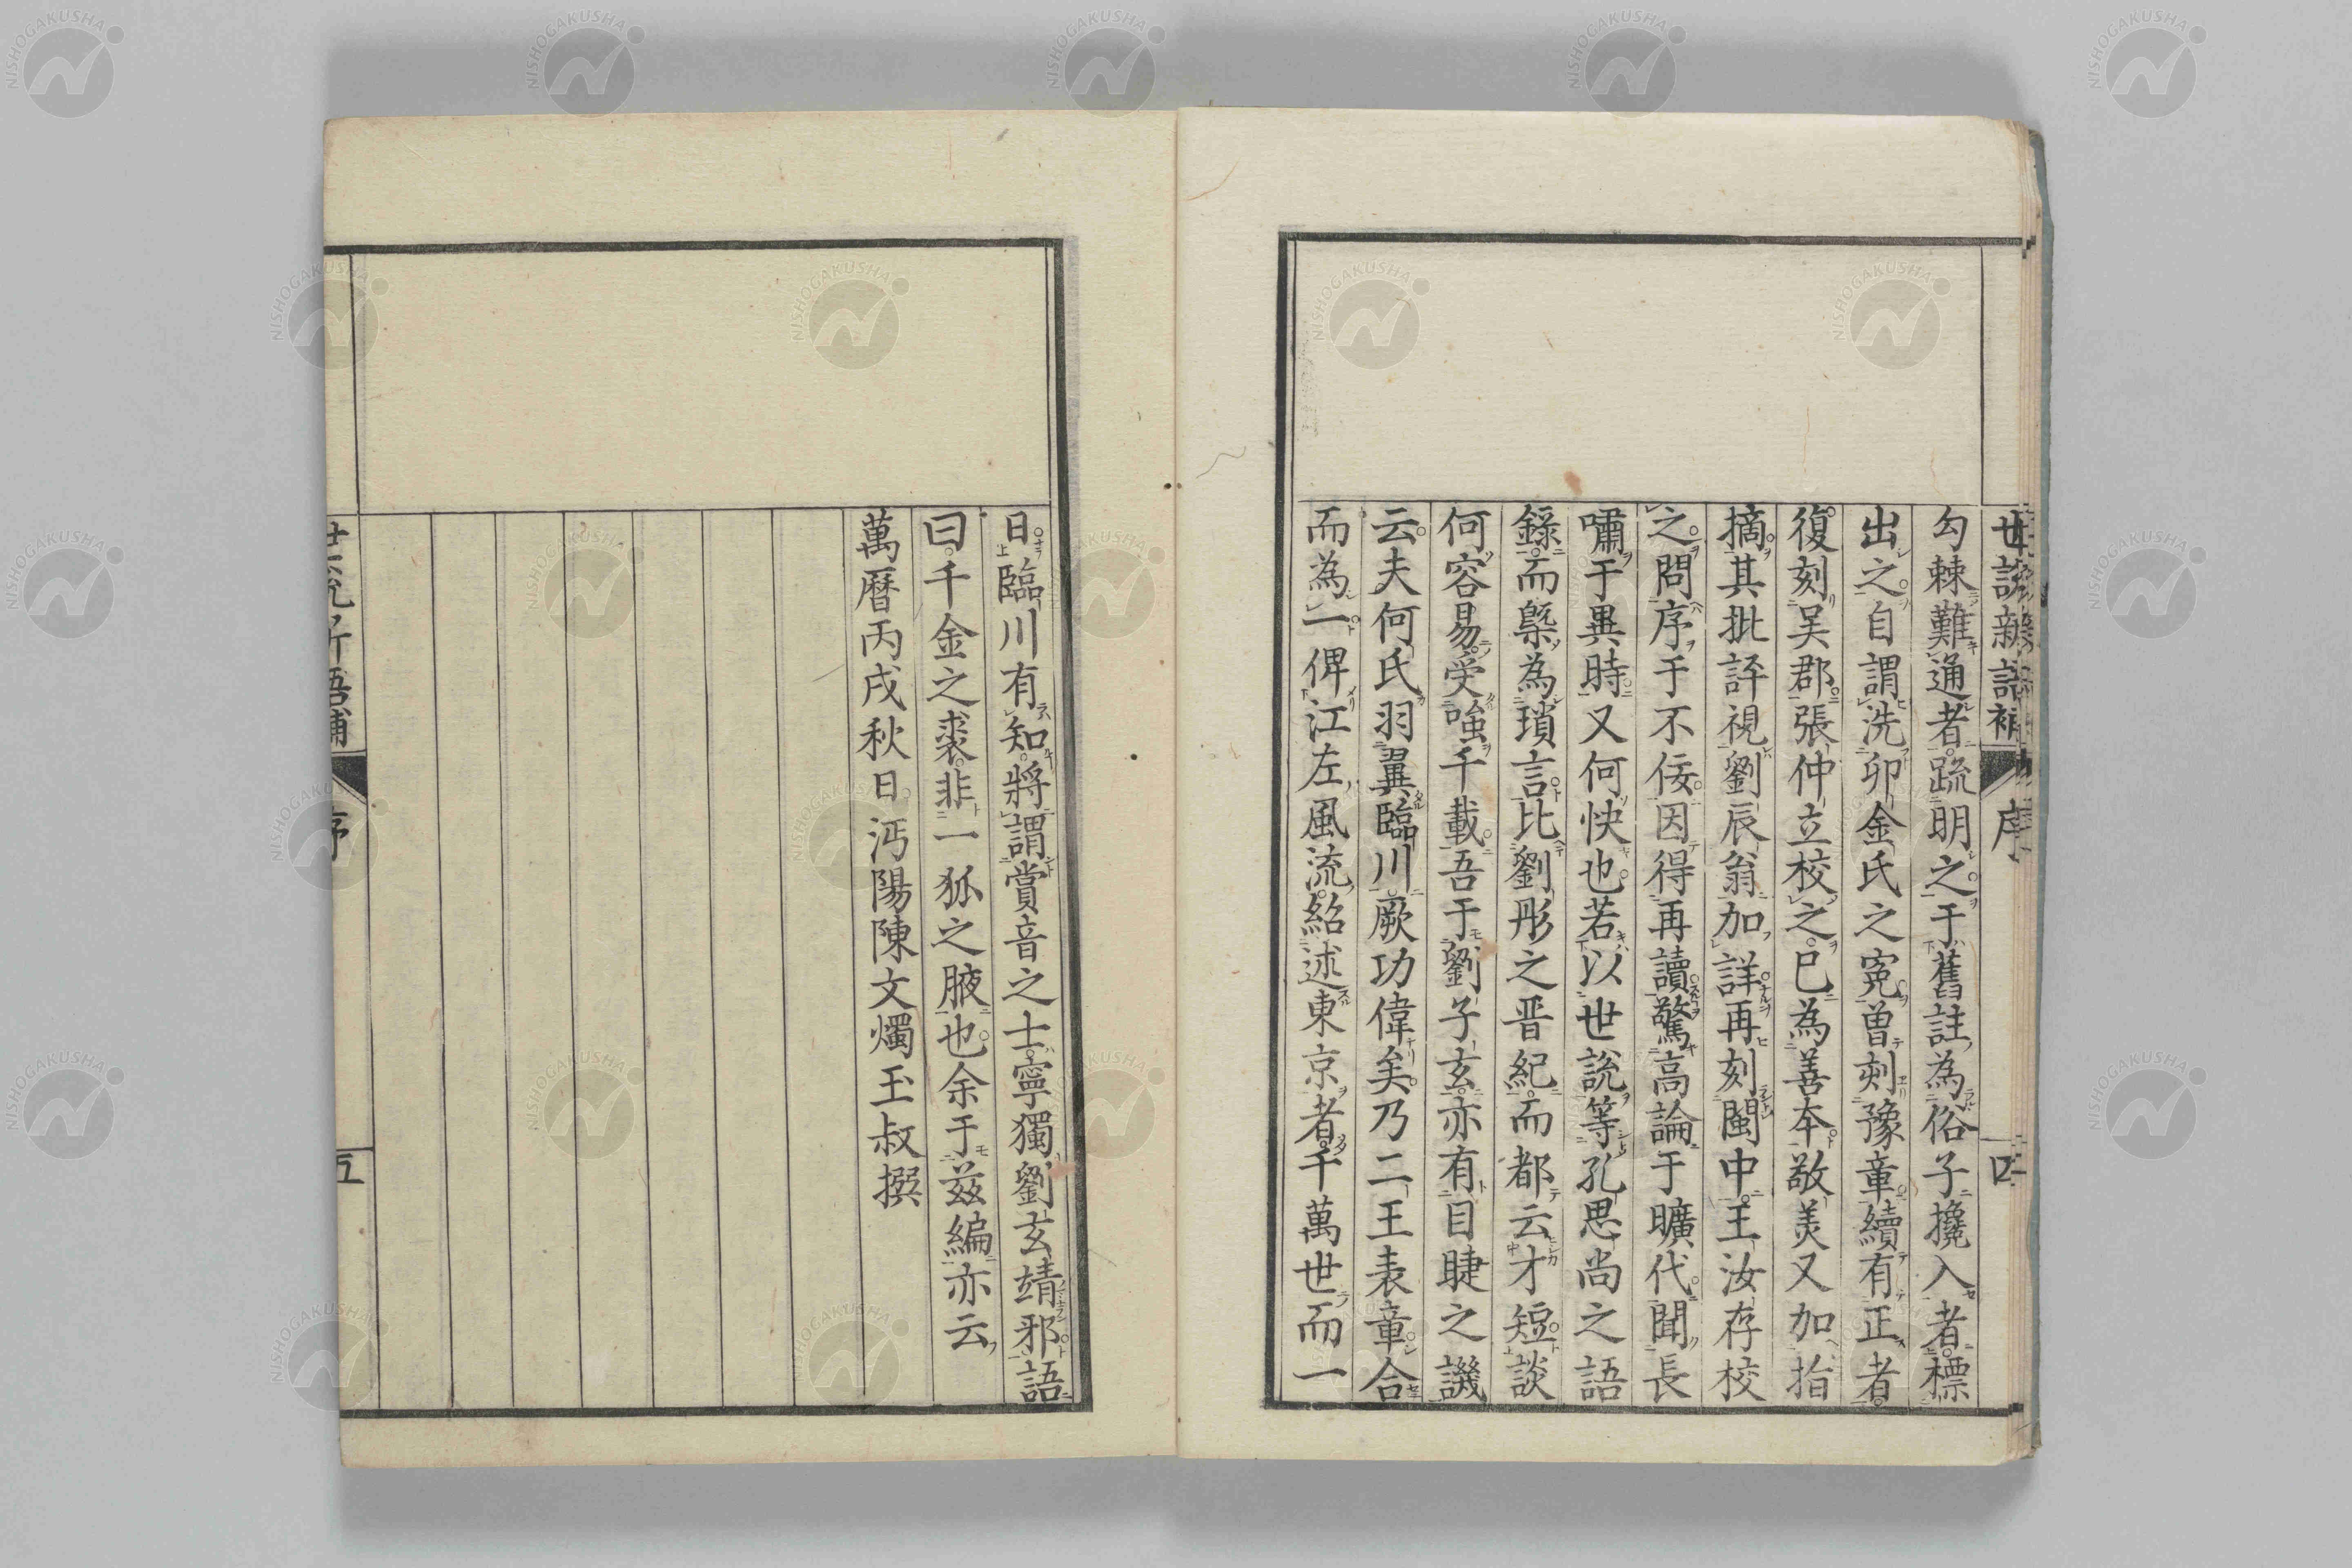 世說新語補 序 四
勾棘難通者疏明之于舊註為俗子攙入者標
出之自謂洗卯金氏之寃曾刻豫章續有正者
復刻吴郡張仲立校之巳為善本敬美又加指
摘其批評視劉辰翁加詳再刻閩中王汝存校
之問序于不佞因得再讀驚高論于曠代聞長
嘯于異時又何快也若以世說等孔思尚之語
錄而槩為瑣言比劉彤之晋紀而都云才短談
何容易受嗤千載吾于劉子玄亦有目睫之譏
云夫何氏羽翼臨川厥功偉矣乃二王表章合
而為一俾江左風流紹述東京者千萬世而一
日臨川有知將謂賞音之士寧獨劉玄靖邪語
曰千金之裘非一狐之腋也余于茲編亦云
萬曆丙戌秋日沔陽陳文燭玉叔撰
世說新語補 序 五
NISHOGAKUSHA